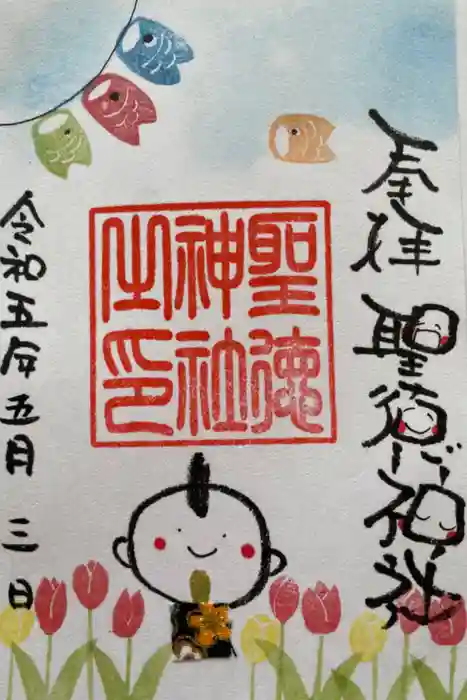 奉拝
聖徳神社
聖徳
神社
之印
令和五年五月三日